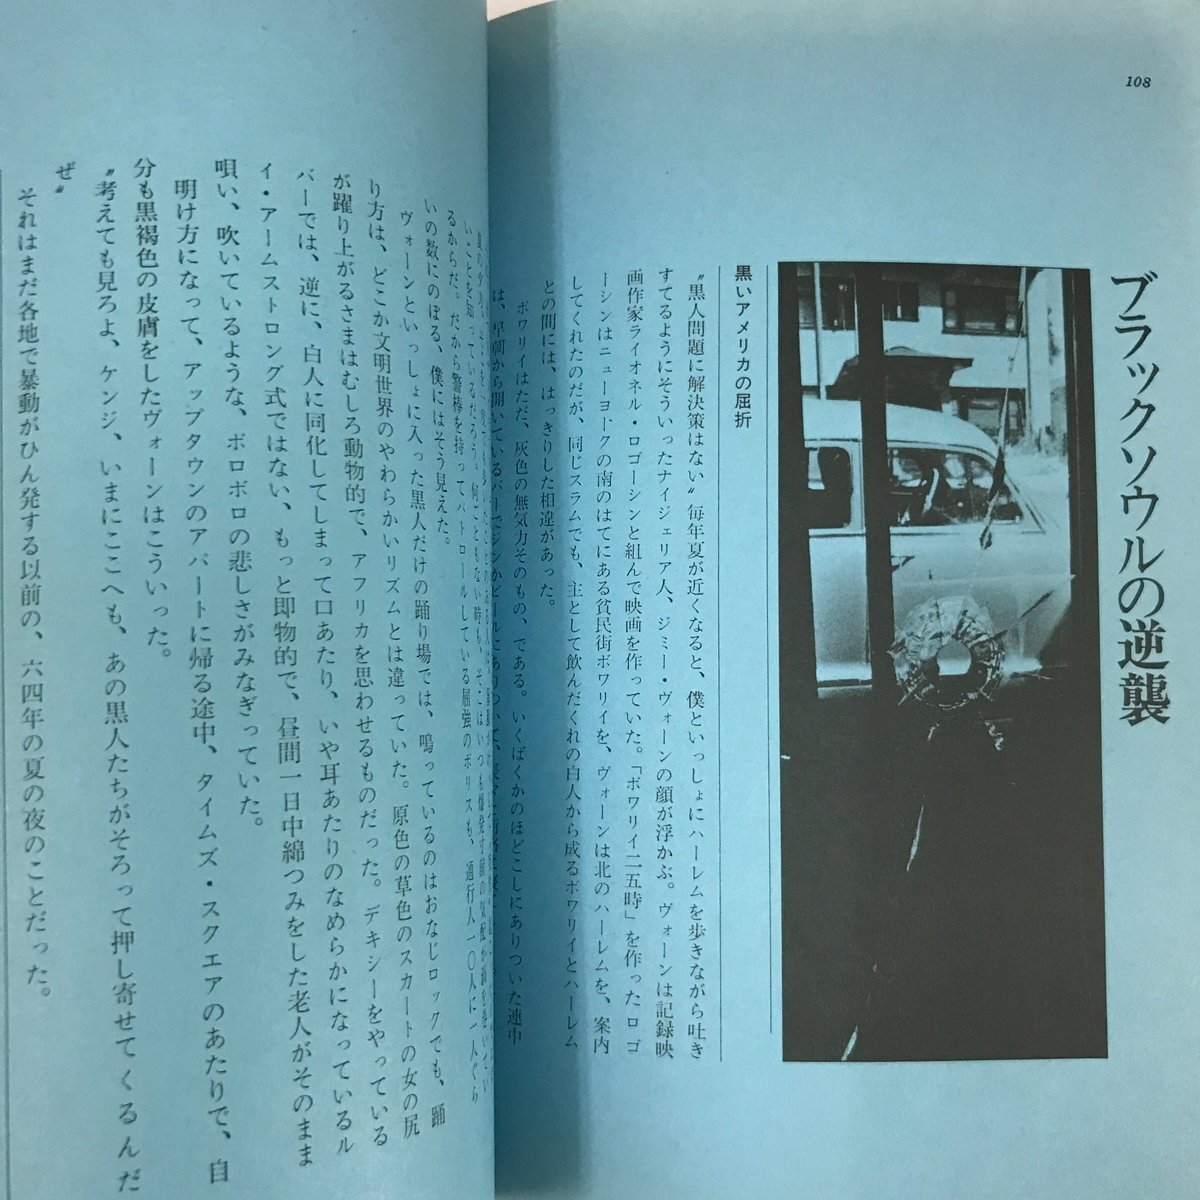 108
ブラックソウルの逆襲
黒いアメリカの屈折
〝黒人問題に解決策はない〟毎年夏が近くなると、僕といっしょにハーレムを歩きながら吐き
すてるようにそういったナイジェリア人、ジミー・ヴォーンの顔が浮かぶ。ヴォーンは記録映
画作家ライオネル・ロゴーシンと組んで映画を作っていた。「ボワリイ二五時」を作ったロゴ
ーシンはニューヨークの南のはてにある貧民街ボワリイを、ヴォーンは北のハーレムを、案内
してくれたのだが、同じスラムでも、主として飲んだくれの白人から成るボワリイとハーレム
との間には、はっきりした相違があった。
ボワリイはただ、灰色の無気力そのもの、である。いくばくかのほどこしにありついた連中
は、早朝から開いているバーでジンかビールにありついて、
いことを知っているだろう。何ごともない時も、そこはいつも爆発寸前の気配が渦を巻いてい
るからだ。だから警棒を持ってパトロールしている屈強のポリスも、通行人一〇人に一人ぐら
いの数にのぼる、僕にはそう見えた。
ヴォーンといっしょに入った黒人だけの踊り場では、鳴っているのはおなじロックでも、踊
り方は、どこか文明世界のやわらかいリズムとは違っていた。原色の草色のスカートの女の尻
が躍り上がるさまはむしろ動物的で、アフリカを思わせるものだった。デキシーをやっている
バーでは、逆に、白人に同化してしまって口あたり、いや耳あたりのなめらかになっているル
イ・アームストロング式ではない、もっと即物的で、昼間一日中綿つみをした老人がそのまま
唄い、吹いているような、ボロボロの悲しさがみなぎっていた。
明け方になって、アップタウンのアパートに帰る途中、タイムズ・スクエアのあたりで、自
分も黒褐色の皮膚をしたヴォーンはこういった。
〝考えても見ろよ、ケンジ、いまにここへも、あの黒人たちがそろって押し寄せてくるんだ
ぜ〟
それはまだ各地で暴動がひん発する以前の、六四年の夏の夜のことだった。